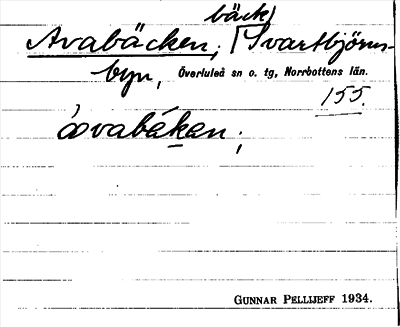 bäck)
Avabäcken, (Svartbjörns-
byn, Överluleå sn o. tg, Norrbottens län.
155.
GUNNAR PELLIJEFF 1934.